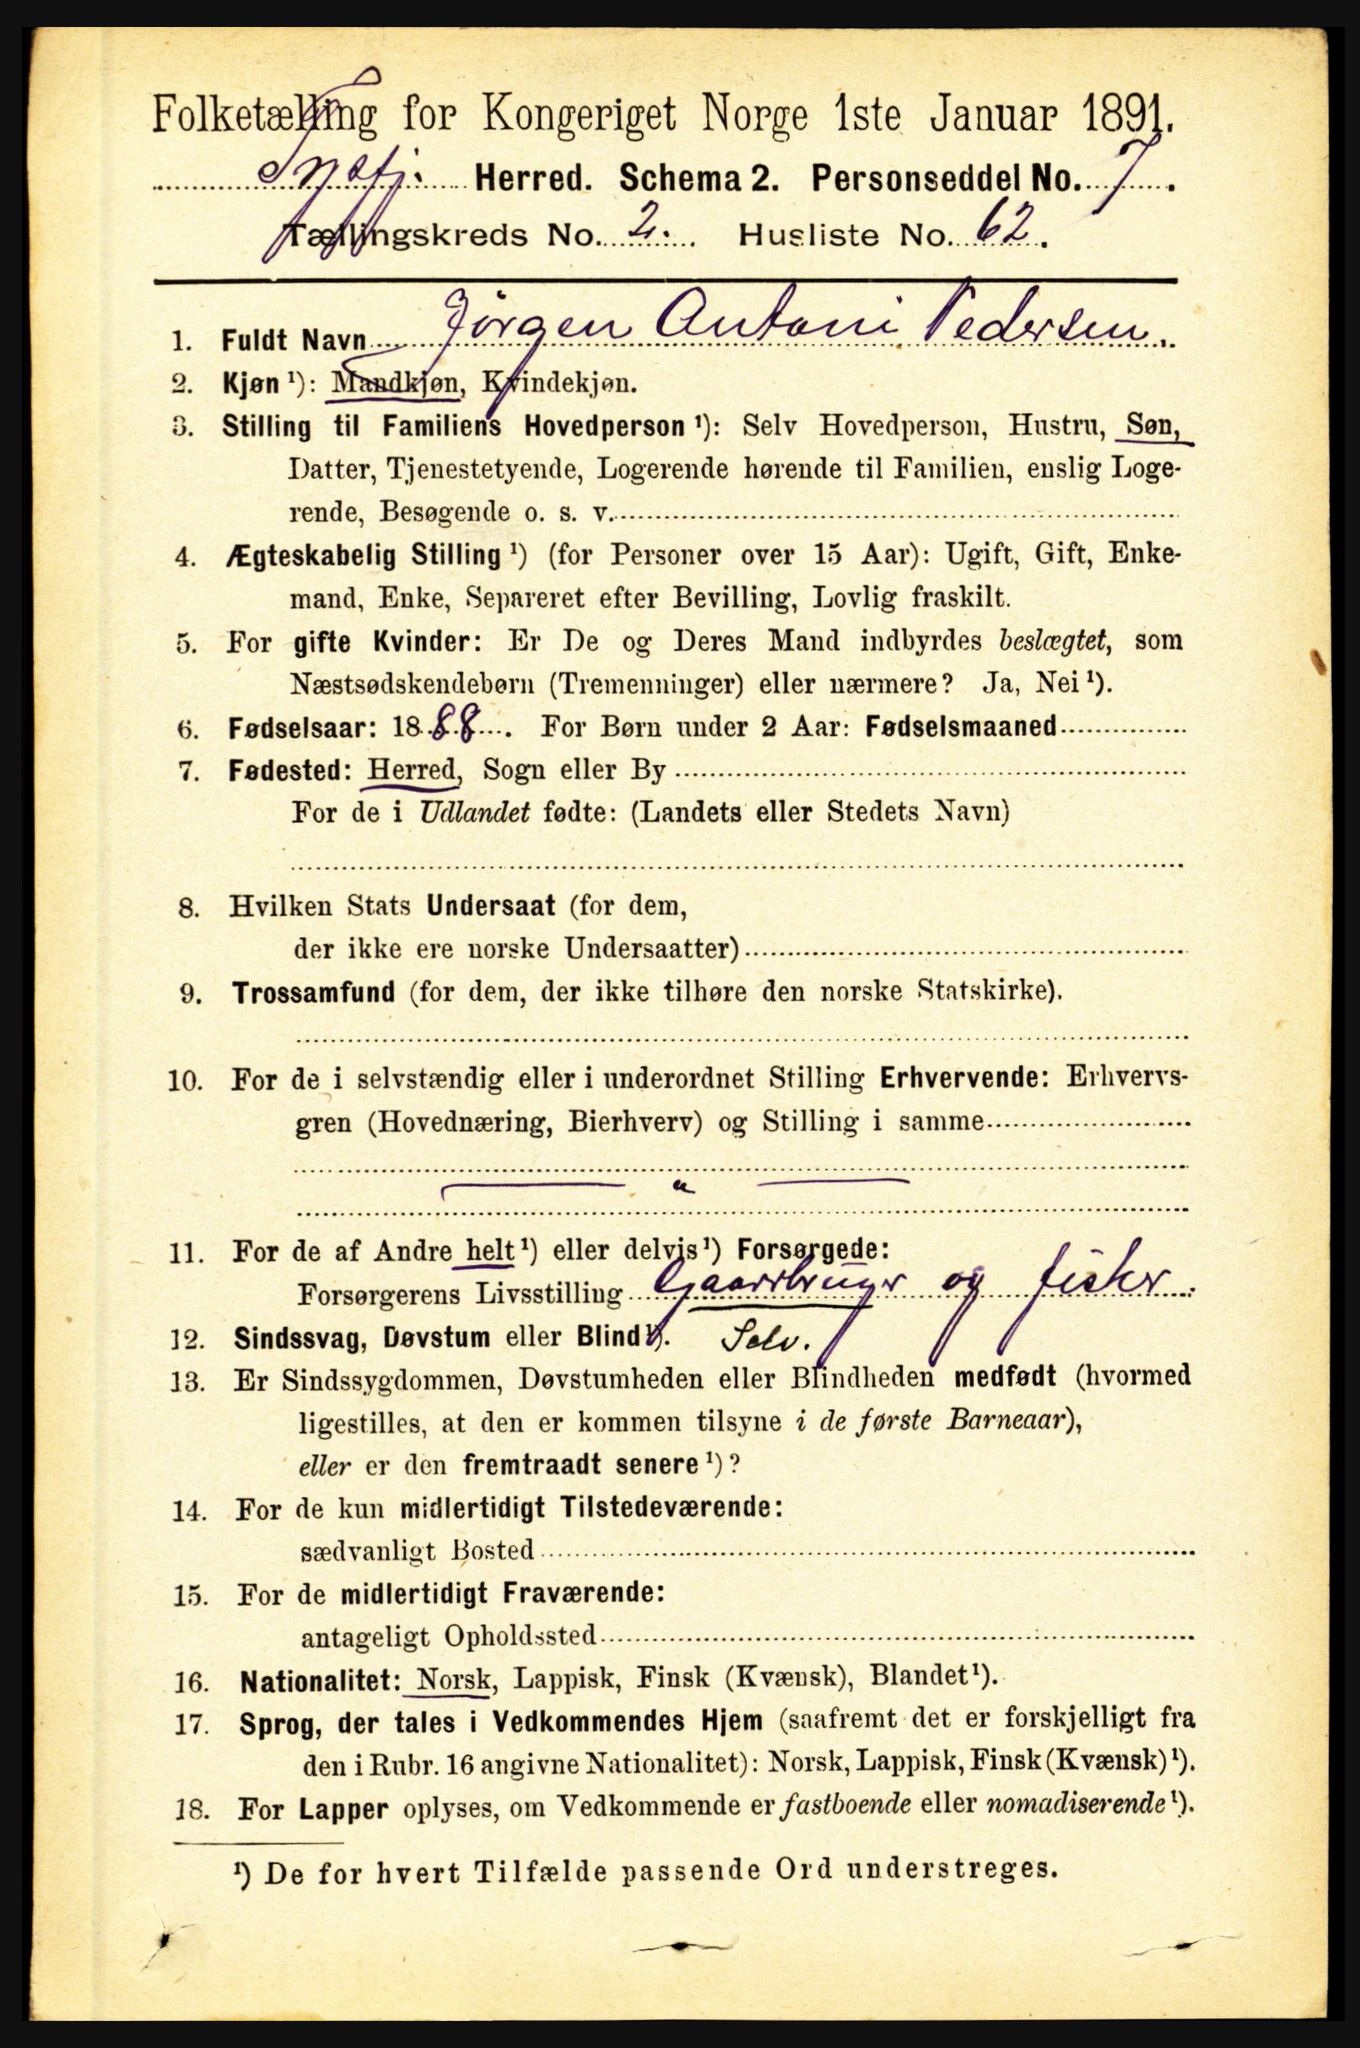 Folketælling for Kongeriget Norge 1ste Januar 1891.
Herred. Schema 2. Personseddel No. 7.
Tællingskreds No. 2. Husliste No. 62.
1. Fuldt Navn Jörgen Antoni Pedersen.
2. Kjøn ¹): Mandkjøn, Kvindekjøn.
3. Stilling til Familiens Hovedperson ¹): Selv Hovedperson, Hustru, Søn,
Datter, Tjenestetyende, Logerende hørende til Familien, enslig Loge-
rende, Besøgende o. s. v.
4. Ægteskabelig Stilling ¹) (for Personer over 15 Aar): Ugift, Gift, Enke-
mand, Enke, Separeret efter Bevilling, Lovlig fraskilt.
5. For gifte Kvinder: Er De og Deres Mand indbyrdes beslægtet, som
Næstsødskendebørn (Tremenninger) eller nærmere? Ja, Nei ¹).
6. Fødselsaar: 1888. For Børn under 2 Aar: Fødselsmaaned
7. Fødested: Herred, Sogn eller By
For de i Udlandet fødte: (Landets eller Stedets Navn)
8. Hvilken Stats Undersaat (for dem,
der ikke ere norske Undersaatter)
9. Trossamfund (for dem, der ikke tilhøre den norske Statskirke).
10. For de i selvstændig eller i underordnet Stilling Erhvervende: Erhvervs-
gren (Hovednæring, Bierhverv) og Stilling i samme
11. For de af Andre helt ¹) eller delvis ¹) Forsørgede:
Forsørgerens Livsstilling Gaardbruger og fisker.
12. Sindssvag, Døvstum eller Blind ¹). Selv.
13. Er Sindssygdommen, Døvstumheden eller Blindheden medfødt (hvormed
ligestilles, at den er kommen tilsyne i de første Barneaar),
eller er den fremtraadt senere ¹)?
14. For de kun midlertidigt Tilstedeværende:
sædvanligt Bosted
15. For de midlertidigt Fraværende:
antageligt Opholdssted
16. Nationalitet: Norsk, Lappisk, Finsk (Kvænsk), Blandet ¹).
17. Sprog, der tales i Vedkommendes Hjem (saafremt det er forskjelligt fra
den i Rubr. 16 angivne Nationalitet): Norsk, Lappisk, Finsk (Kvænsk) ¹).
18. For Lapper oplyses, om Vedkommende er fastboende eller nomadiserende ¹).
¹) De for hvert Tilfælde passende Ord understreges.